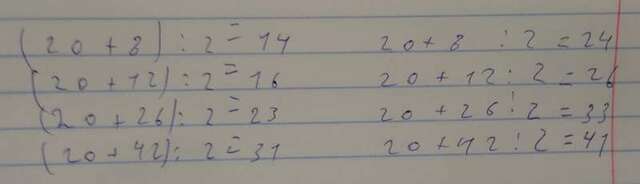 (20 + 8) : 2 = 14 20 + 8 : 2 = 24
(20 + 12) : 2 = 16 20 + 12 : 2 = 26
(20 + 26) : 2 = 23 20 + 26 : 2 = 33
(20 + 42) : 2 = 31 20 + 42 : 2 = 41